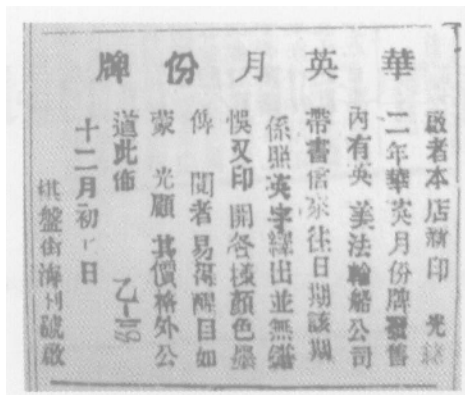 華英月份牌
啟者本店新印 光緒
二年華英月份牌發售
內有英 美法輪船公司
帶書信來往日期該期
係照英字繹出並無錯
悞又印開各樣顏色
俾 閱者易得醒目如
蒙 光顧其價格外公
道此佈
十二月初 日
棋盤街海利號啟